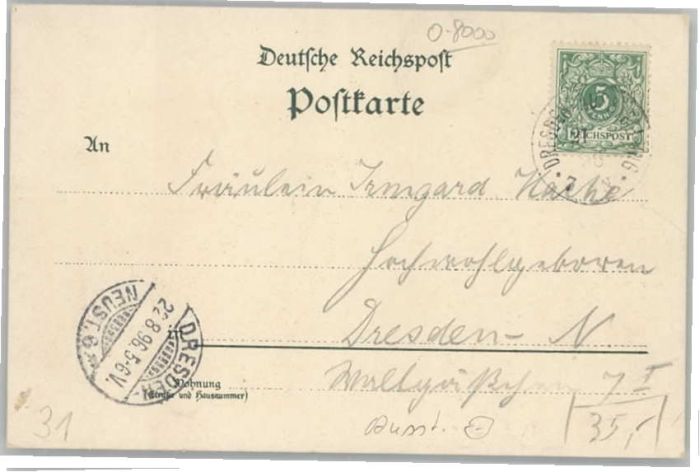 0-8000
Deutsche Reichspost
Postkarte
5
REICHSPOST
DRESDEN
An
Fräulein Irmgard
Hochwohlgeboren
Dresden-N.
Wohnung
(Straße und Hausnummer)
7 I
DRESDEN
NEUST. 6
22.8.96.5-6V.
31
Ausst.
35,-